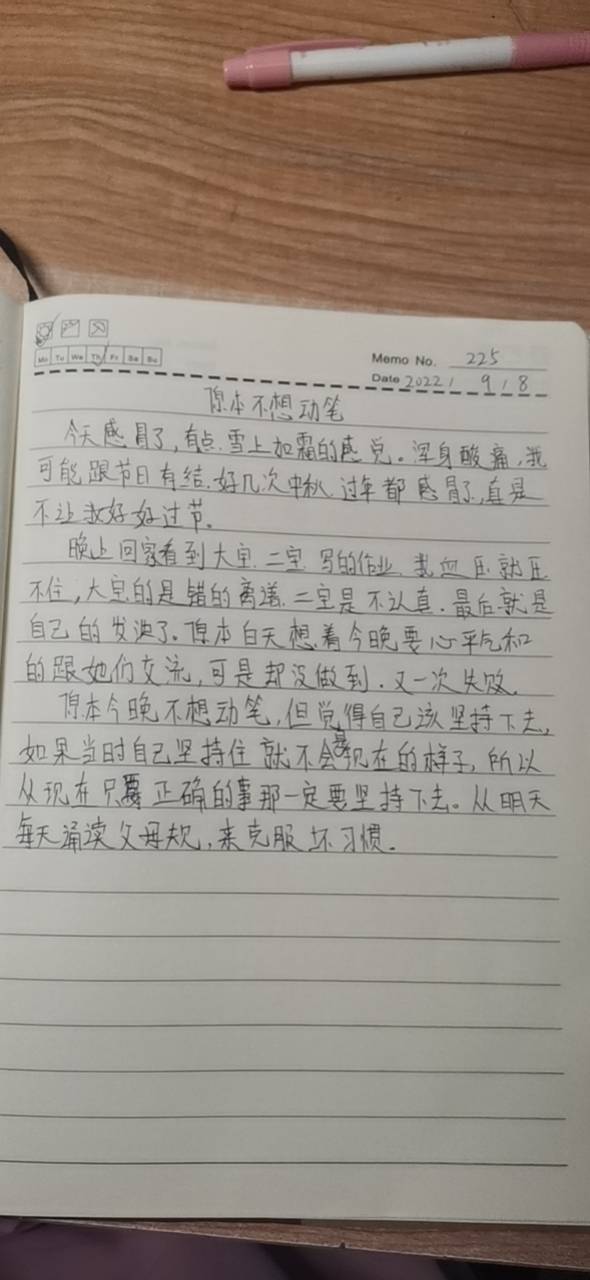 Mo Tu We Th Fr Sa Su
Memo No. 225
Date 2022 / 9 / 8
原本不想动笔
今天感冒了,有点雪上加霜的感觉。浑身酸痛,我
可能跟节日有结.好几次中秋.过年都感冒了,真是
不让我好好过节。
晚上回家看到大宝.二宝写的作业.我血压就压
不住,大宝的是错的离谱.二宝是不认真.最后就是
自己的发泄了.原本白天想着今晚要心平气和
的跟她们交流,可是却没做到.又一次失败.
原本今晚不想动笔,但觉得自己该坚持下去,
如果当时自己坚持住就不会是现在的样子,所以
从现在只要正确的事那一定要坚持下去。从明天
每天诵读父母规,来克服坏习惯.